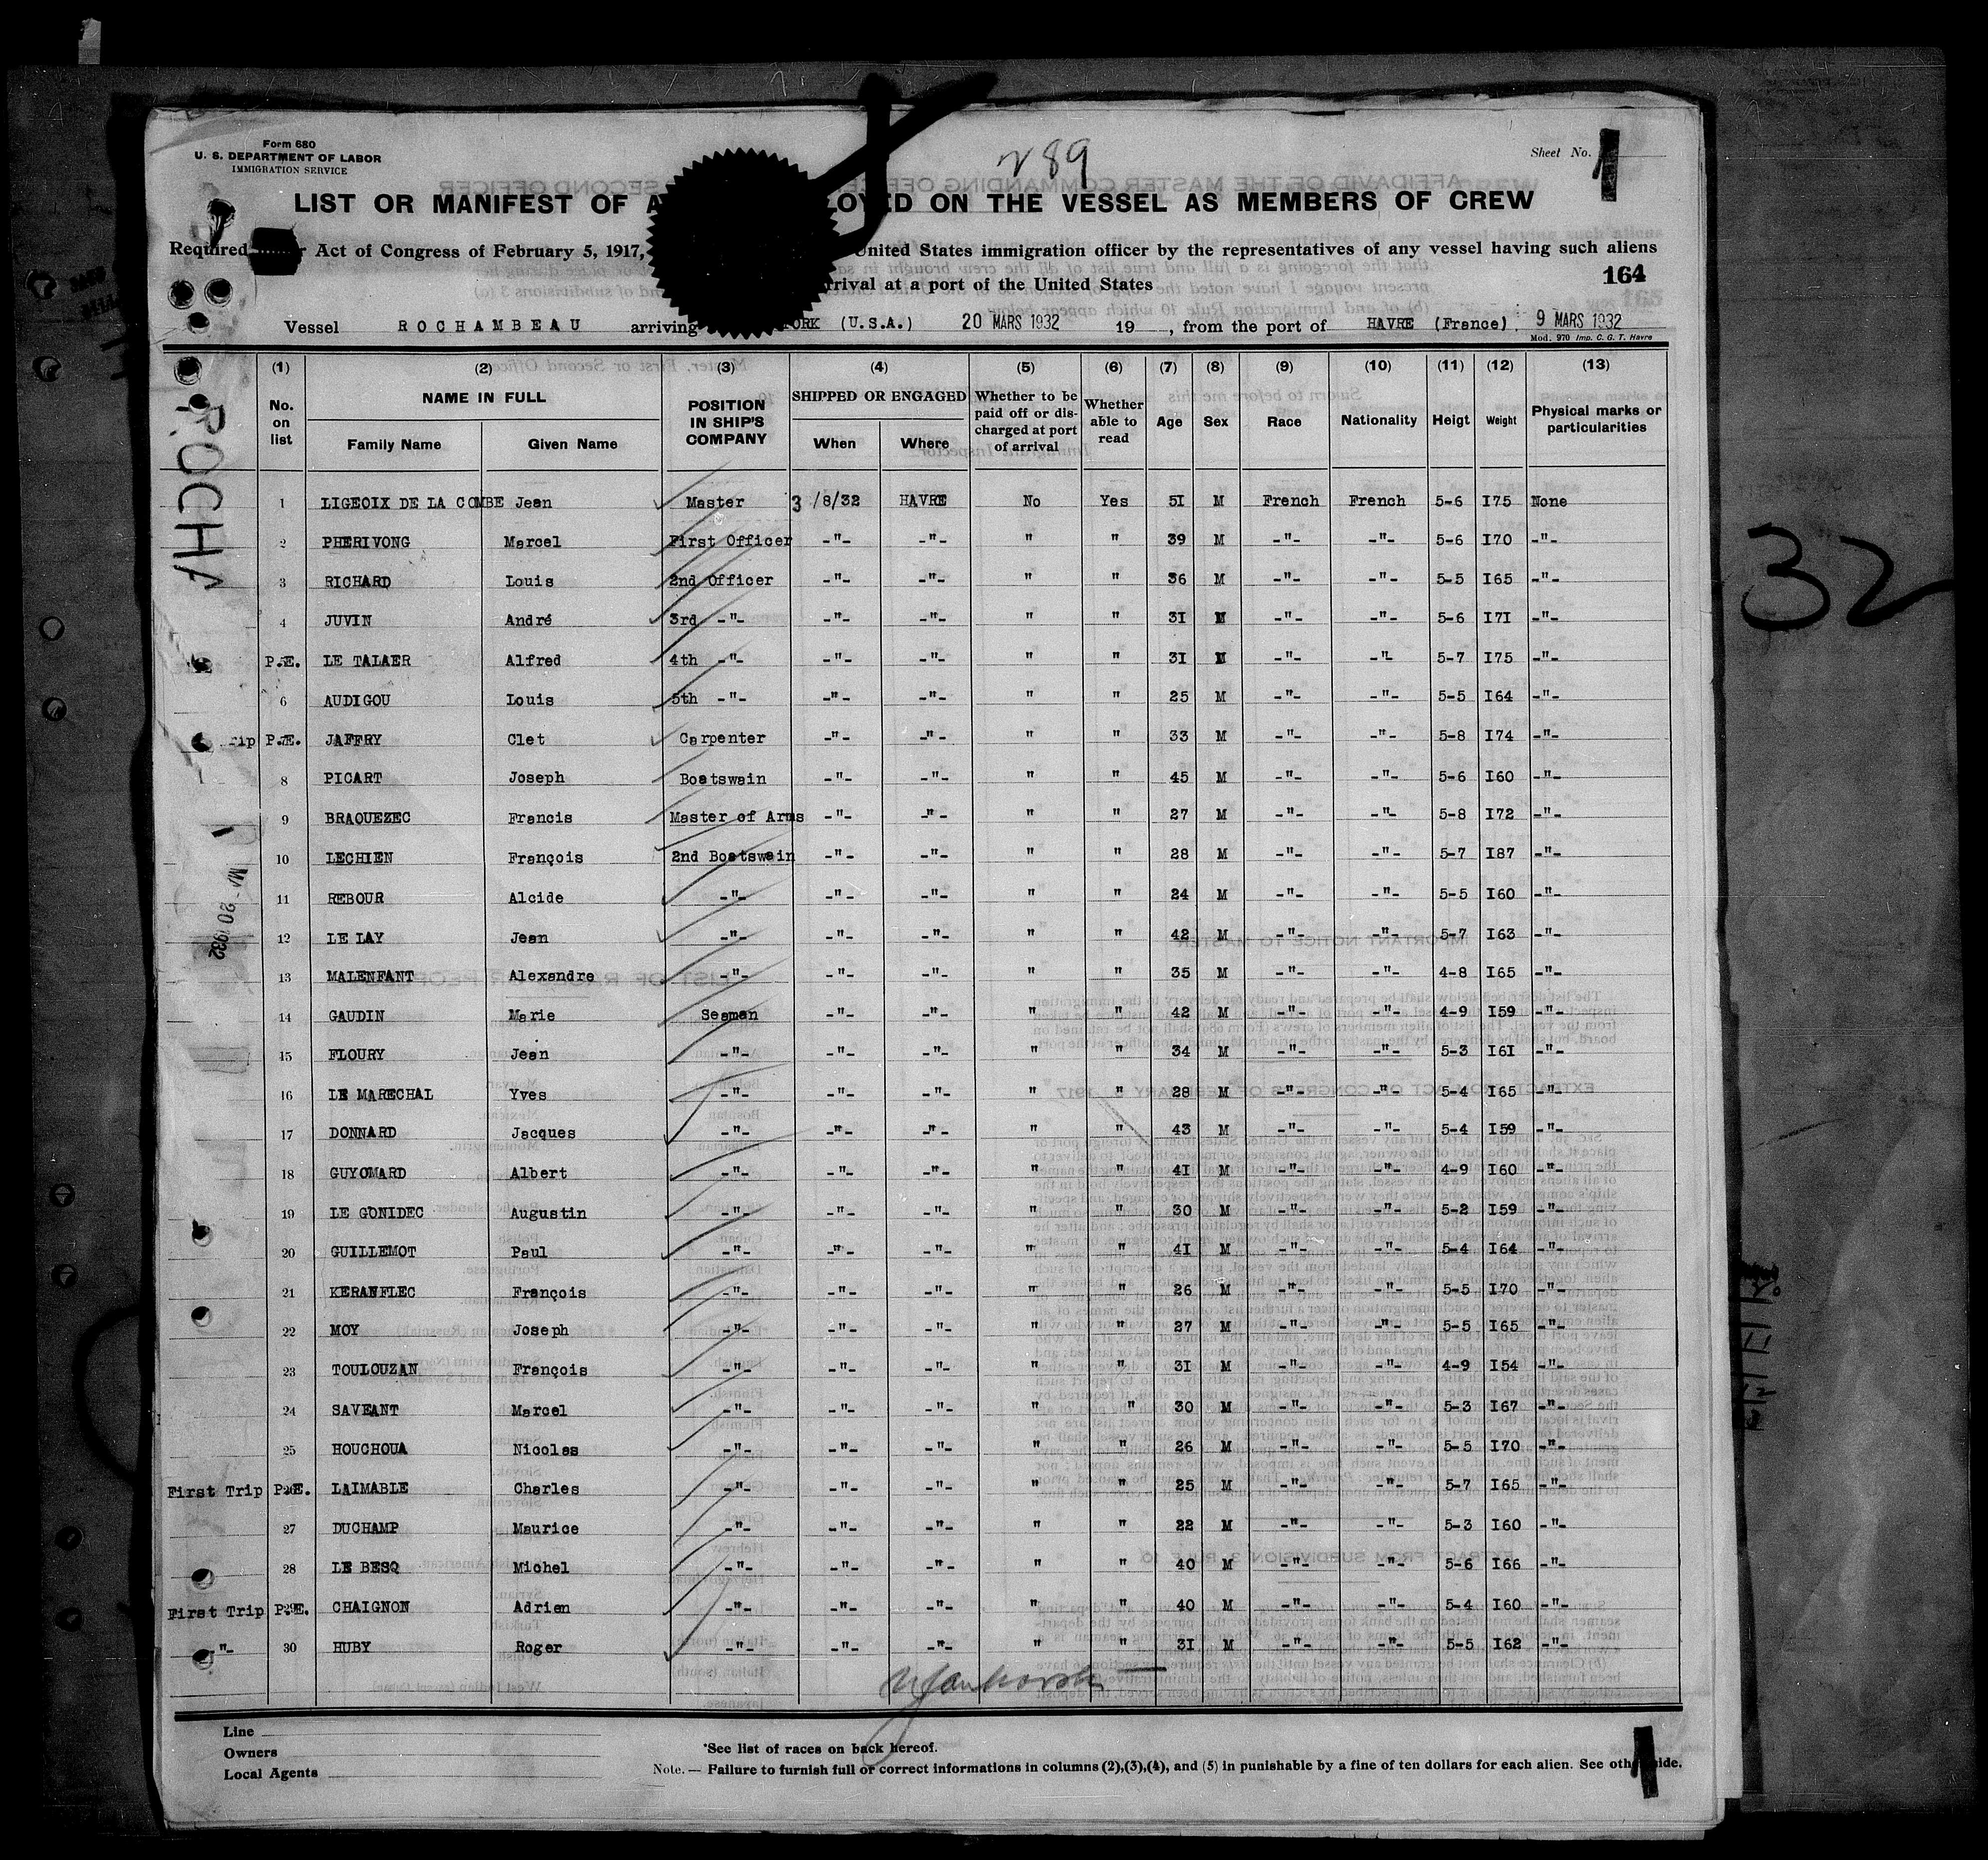 Form 680
U. S. DEPARTMENT OF LABOR
IMMIGRATION SERVICE
289
Sheet No. 1
LIST OR MANIFEST OF A LOYED ON THE VESSEL AS MEMBERS OF CREW
Required under Act of Congress of February 5, 1917, United States immigration officer by the representatives of any vessel having such aliens
rrival at a port of the United States
164
Vessel ROCHAMBEAU arriving YORK (U.S.A.) 20 MARS 1932 19 , from the port of HAVRE (France), 9 MARS 1932
Mod. 970 Imp. C. G. T. Havre
(1) (2) (3) (4) (5) (6) (7) (8) (9) (10) (11) (12) (13)
No. on list NAME IN FULL Family Name Given Name POSITION IN SHIP'S COMPANY SHIPPED OR ENGAGED When Where Whether to be paid off or discharged at port of arrival Whether able to read Age Sex Race Nationality Heigt Weight Physical marks or particularities
1 LIGEOIX DE LA COMBE Jean Master 3/8/32 HAVRE No Yes 51 M French French 5-6 I75 None
2 PHERIVONG Marcel First Officer -"- -"- " " 39 M -"- -"- 5-6 I70 -"-
3 RICHARD Louis 2nd Officer -"- -"- " " 36 M -"- -"- 5-5 I65 -"-
4 JUVIN André 3rd -"- -"- -"- " " 3I M -"- -"- 5-6 I7I -"-
P.E. LE TALAER Alfred 4th -"- -"- -"- " " 3I M -"- -"- 5-7 I75 -"-
6 AUDIGOU Louis 5th -"- -"- -"- " " 25 M -"- -"- 5-5 I64 -"-
rip P.E. JAFFRY Clet Carpenter -"- -"- " " 33 M -"- -"- 5-8 I74 -"-
8 PICART Joseph Boatswain -"- -"- " " 45 M -"- -"- 5-6 I60 -"-
9 BRAOUEZEC Francis Master of Arms -"- -"- " " 27 M -"- -"- 5-8 I72 -"-
10 LECHIEN François 2nd Boatswain -"- -"- " " 28 M -"- -"- 5-7 I87 -"-
11 REBOUR Alcide -"- -"- -"- " " 24 M -"- -"- 5-5 I60 -"-
12 LE LAY Jean -"- -"- -"- " " 42 M -"- -"- 5-7 I63 -"-
13 MALENFANT Alexandre -"- -"- -"- " " 35 M -"- -"- 4-8 I65 -"-
14 GAUDIN Marie Seaman -"- -"- " " 42 M -"- -"- 4-9 I59 -"-
15 FLOURY Jean -"- -"- -"- " " 34 M -"- -"- 5-3 I6I -"-
16 LE MARECHAL Yves -"- -"- -"- " " 28 M -"- -"- 5-4 I65 -"-
17 DONNARD Jacques -"- -"- -"- " " 43 M -"- -"- 5-4 I59 -"-
18 GUYOMARD Albert -"- -"- -"- " " 4I M -"- -"- 4-9 I60 -"-
19 LE GONIDEC Augustin -"- -"- -"- " " 30 M -"- -"- 5-2 I59 -"-
20 GUILLEMOT Paul -"- -"- -"- " " 4I M -"- -"- 5-4 I64 -"-
21 KERANFLEC François -"- -"- -"- " " 26 M -"- -"- 5-5 I70 -"-
22 MOY Joseph -"- -"- -"- " " 27 M -"- -"- 5-5 I65 -"-
23 TOULOUZAN François -"- -"- -"- " " 3I M -"- -"- 4-9 I54 -"-
24 SAVEANT Marcel -"- -"- -"- " " 30 M -"- -"- 5-3 I67 -"-
25 HOUCHOUA Nicolas -"- -"- -"- " " 26 M -"- -"- 5-5 I70 -"-
First Trip P.E. LAIMABLE Charles -"- -"- -"- " " 25 M -"- -"- 5-7 I65 -"-
27 DUCHAMP Maurice -"- -"- -"- " " 22 M -"- -"- 5-3 I60 -"-
28 LE BESQ Michel -"- -"- -"- " " 40 M -"- -"- 5-6 I66 -"-
First Trip P.E. CHAIGNON Adrien -"- -"- -"- " " 40 M -"- -"- 5-4 I60 -"-
-"- 30 HUBY Roger -"- -"- -"- " " 3I M -"- -"- 5-5 I62 -"-
Line
Owners
Local Agents
*See list of races on back hereof.
Note. — Failure to furnish full or correct informations in columns (2),(3),(4), and (5) in punishable by a fine of ten dollars for each alien. See other side.
ROCHA
20 1932
32